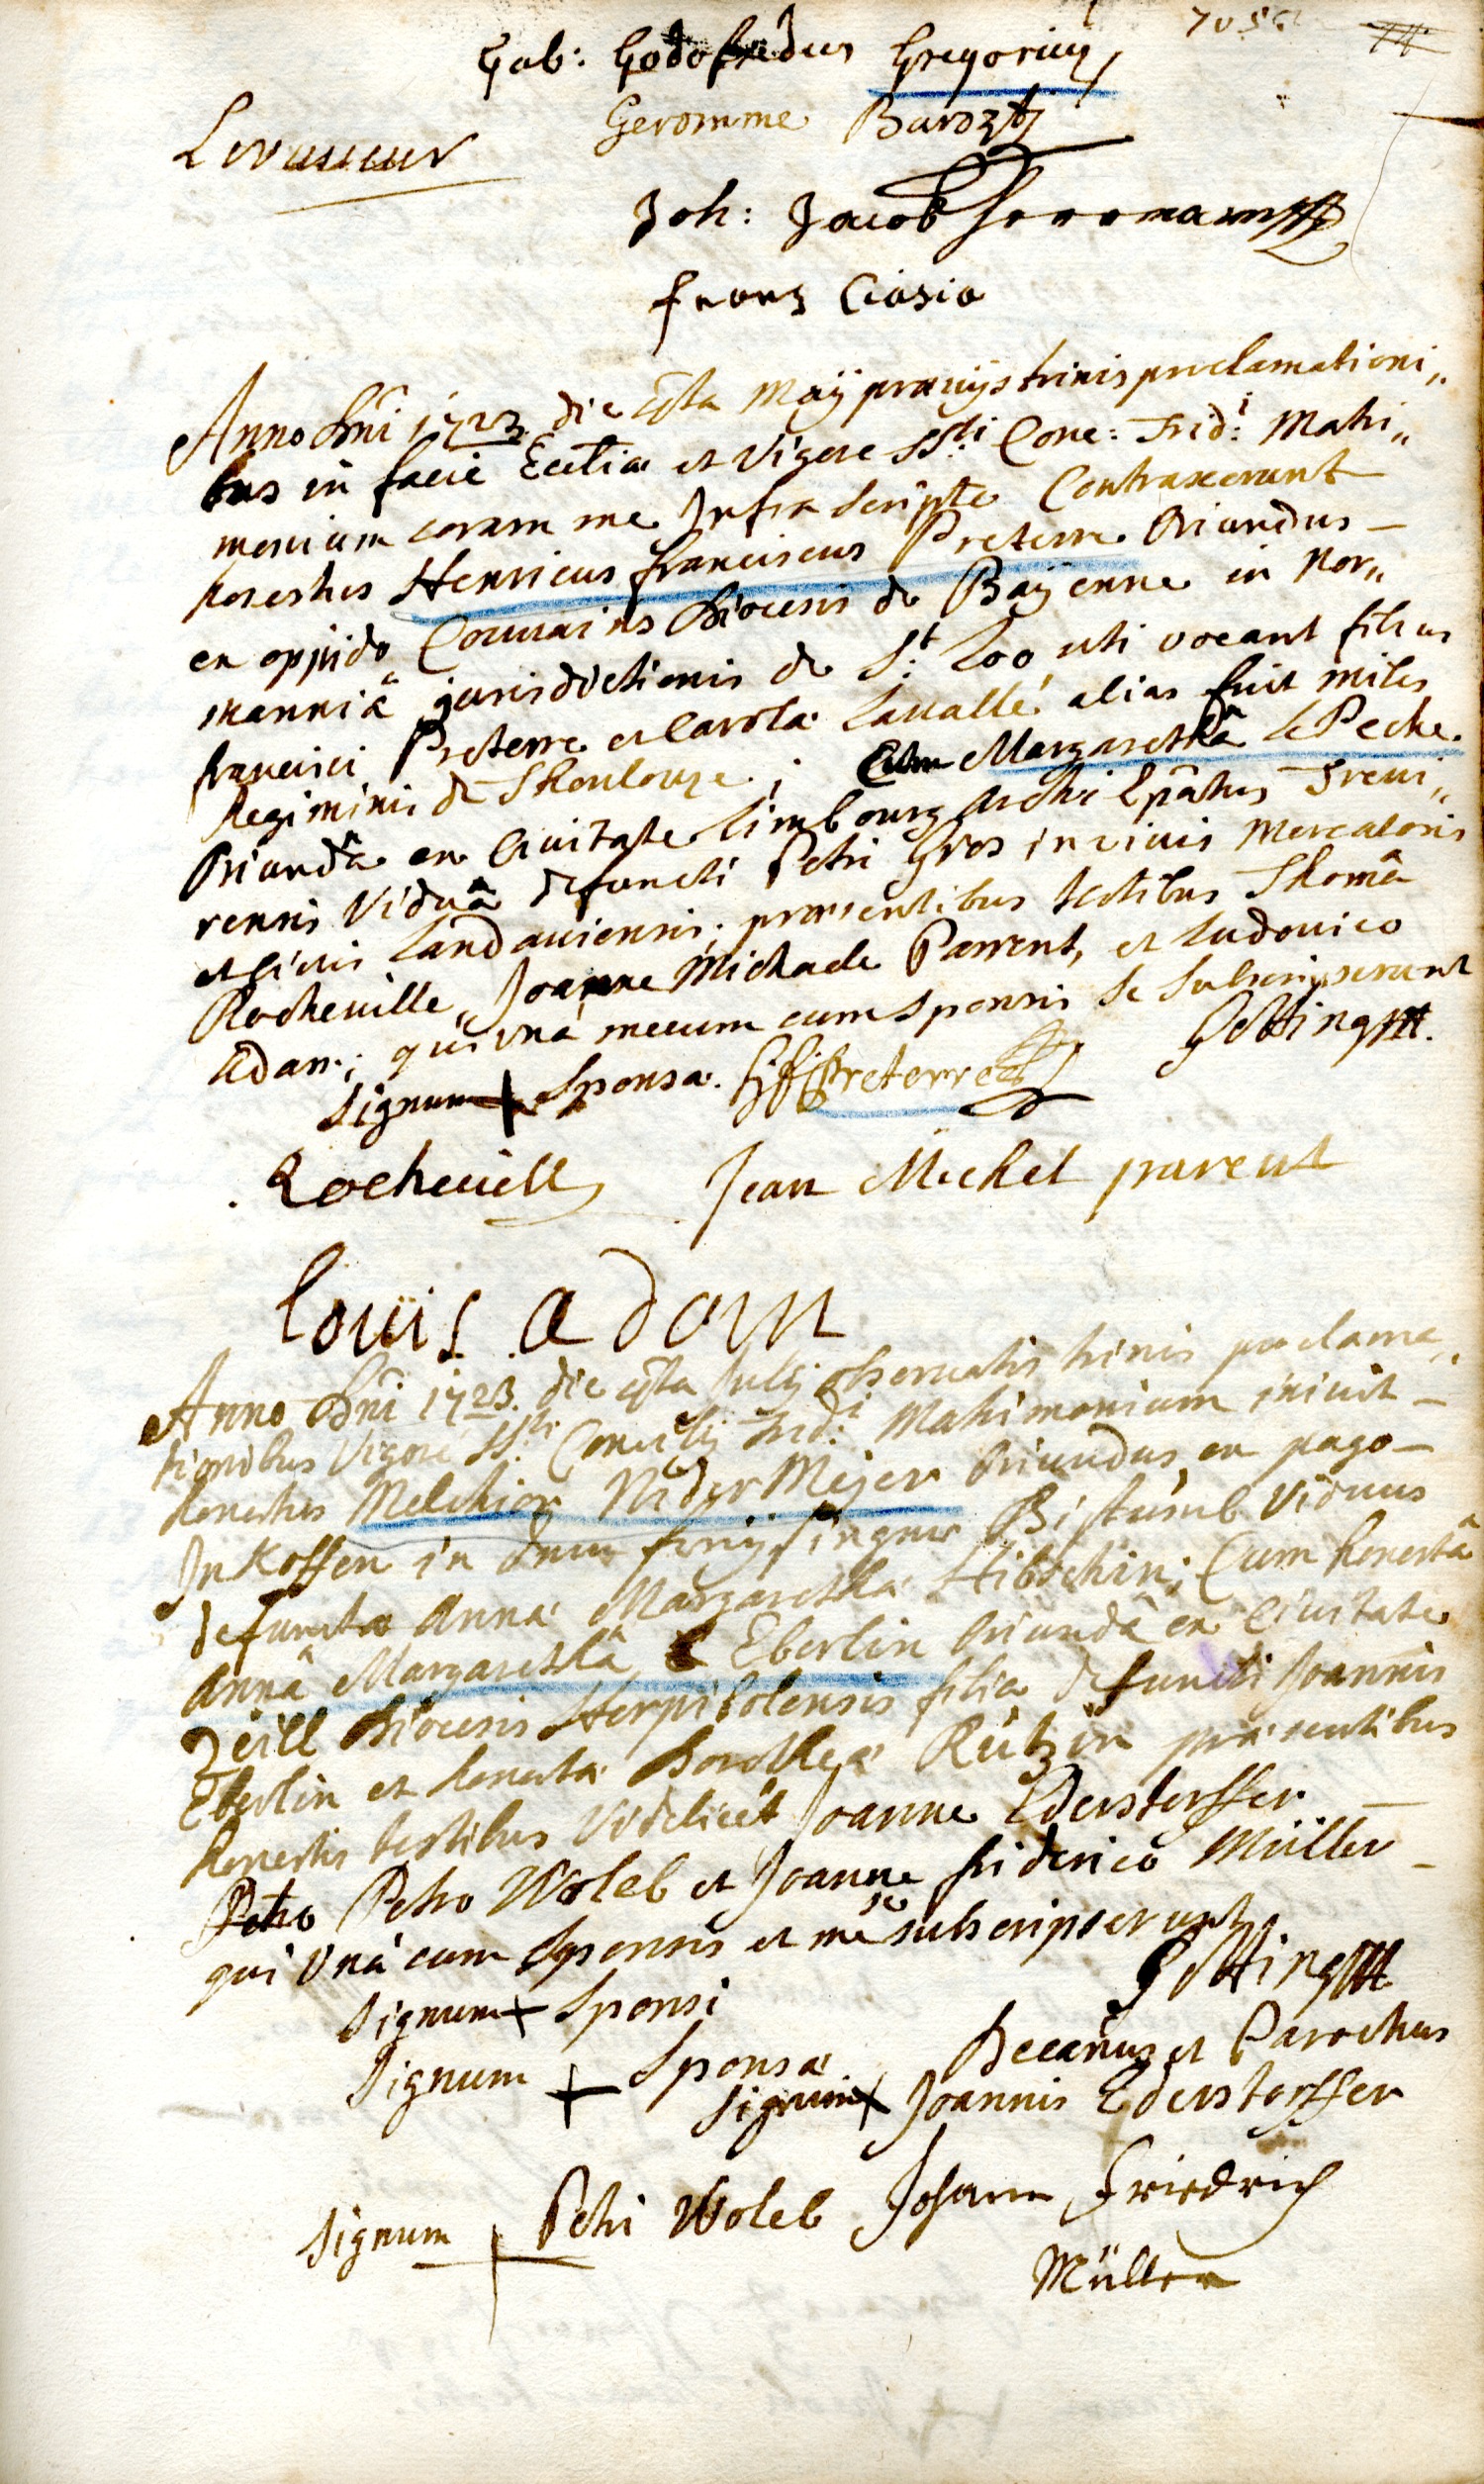 Gab: Godofredus Gregorius
Geromme
Levasseur
Joh: Jacob Herrmann
frantz Ciasio
Anno Dni 1723 die 4ta Maÿ præviis trinis proclamationi„
bus in facie Ecctiæ et Vigore SSti Conc: Trid:i Matri„
monium coram me Infra Scripto Contraxerunt
honestus Henricus franciscus Preterre Oriundus
ex oppido Diocesis de Baÿenne in Nor„
manniâ jurisdictionis de St: Loo uti vocant filius
francisci Preterre et Carolæ Lauallé alias fuit miles
Regiminis de Thoulouze; Cum Margarethâ le Peche
Oriundâ ex Civitate Limbourg Archi Epâtus Trevi„
rensis Viduâ defuncti Petri Gros in vivis Mercatoris
et Civis Landaviensis; præsentibus testibus Thomâ
Rocheville, Joanne Michaele Parrent, et Ludovico
Adam; qui unà mecum cum sponsis se subscripserunt
Signum + Sponsæ. Preterre Götting
Rocheuille Jean Michel parent
Louis adam
Anno Dni 1723. die 4ta Julÿ observatis trinis proclama„
tionibus Vigore SSti Concilÿ Trid:i Matrimonium inivit
honestus Melchior NiderMeÿer Oriundus ex pago
Inkoffen in dem Bistumb Viduus
defunctæ Annæ Margarethæ Hibschin; Cum honestâ
Annâ Margarethâ Eberlin Oriundâ ex Civitate
Zeill Diocesis Herpipolensis filia defuncti Joannis
Eberlin et honestæ Dorotheæ Rützin præsentibus
honestis testibus Videlicet Joanne Ederstorffer
Petro Petro Woleb et Joanne friderico Müller
qui Unà cum Sponsis et me se subscripserunt
Götting
Signum + Sponsi
Decanus et Parochus
Signum + Sponsæ
Signum + Joannis Ederstorffer
Signum + Petri Woleb Johann Friedrich
Müller